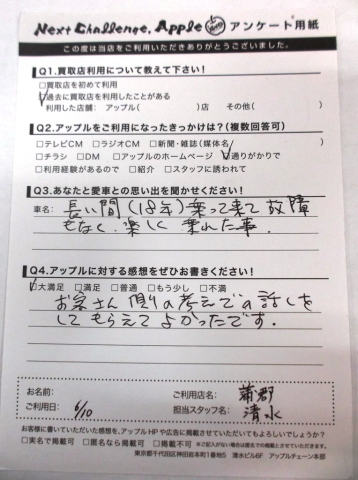 Next Challenge. Apple アンケート用紙
この度は当店をご利用いただきありがとうございました。
Q1.買取店利用について教えて下さい!
□買取店を初めて利用
□過去に買取店を利用したことがある
利用した店舗: アップル( )店 その他( )
Q2.アップルをご利用になったきっかけは?(複数回答可)
□テレビCM □ラジオCM □新聞・雑誌(媒体名 )
□チラシ □DM □アップルのホームページ □通りがかりで
□利用経験があるので □紹介 □スタッフに誘われて
Q3.あなたと愛車との思い出を聞かせください!
車名: 長い間(18年)乗って来て故障
もなく、楽しく乗れた事.
Q4.アップルに対する感想をぜひお書きください!
□大満足 □満足 □普通 □もう少し □不満
お客さん側の考えでの話しを
してもらえてよかったです.
お名前:
ご利用店名: 蒲郡
ご利用日: 6/10
担当スタッフ名: 清水
お客様に書いていただいた感想を、アップルHPや広告に掲載させていただいてもよろしいでしょうか?
□実名で掲載可 □匿名なら掲載可 □掲載不可 ※ご記入がない場合は匿名での掲載とさせていただきます。
東京都千代田区神田岩本町1番地5 清水ビル6F アップルチェーン本部